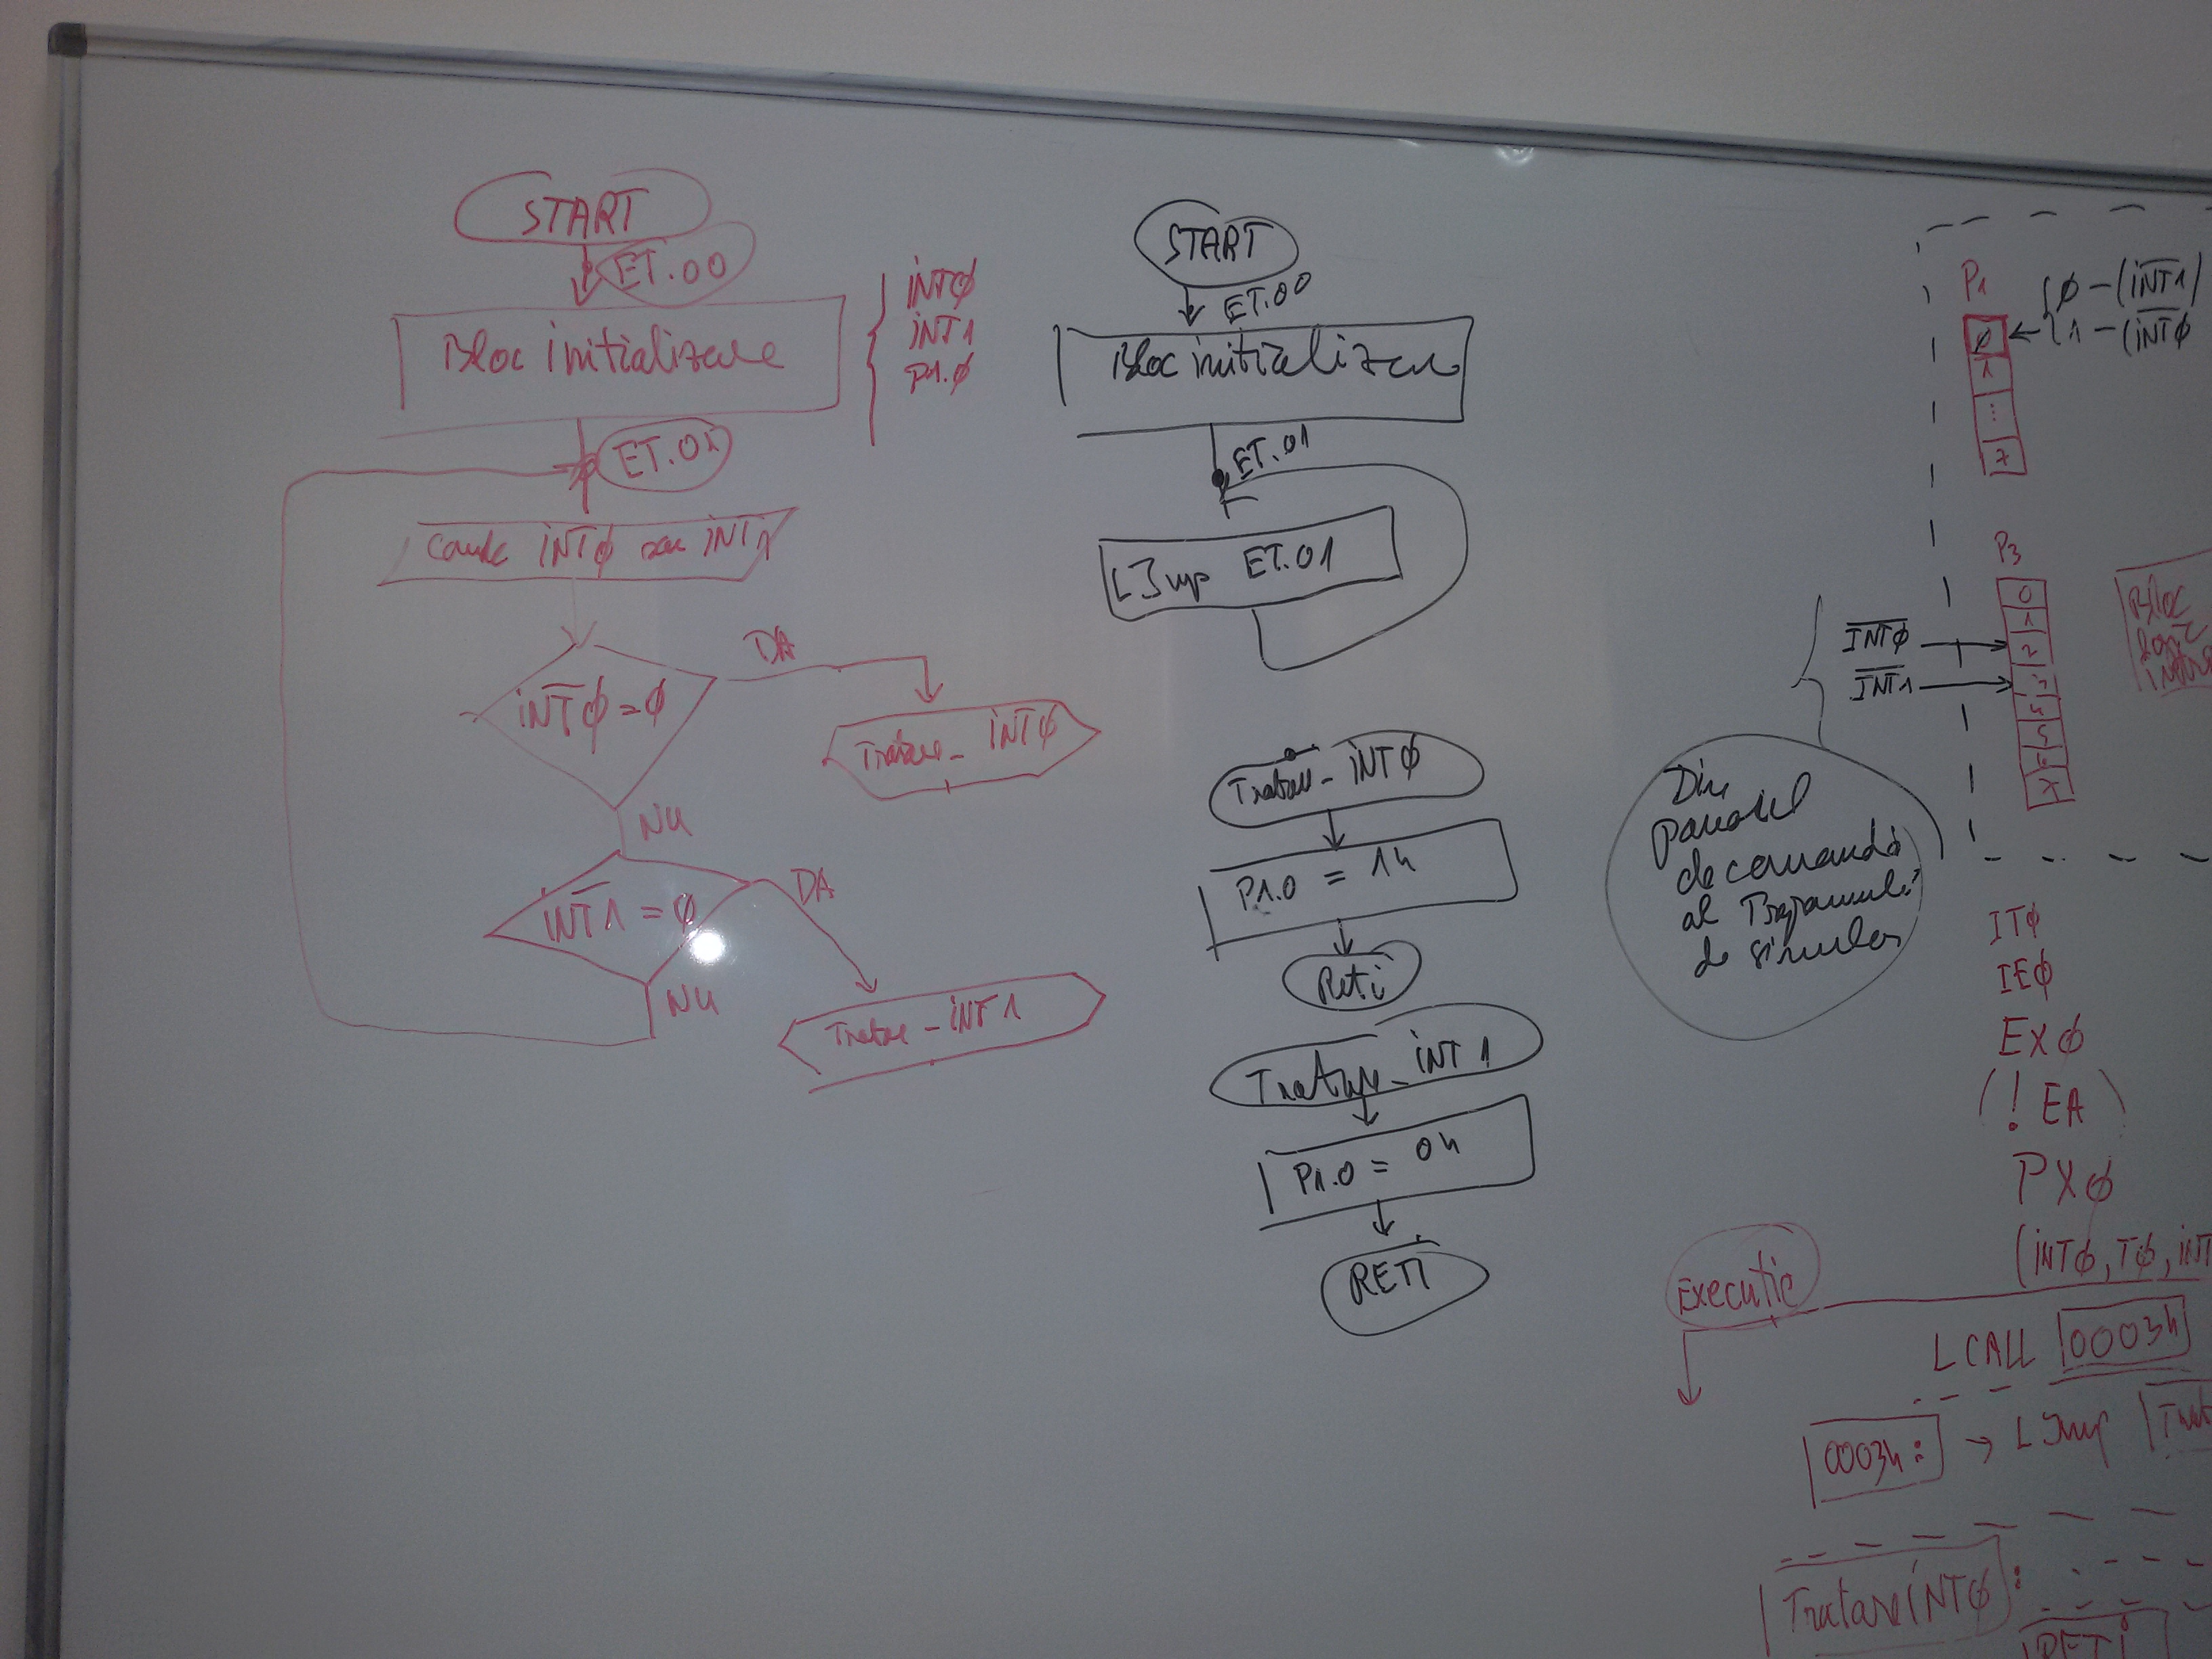 START
ET.00
Bloc initializare
INTφ
INT1
P1.φ
ET.01
INTφ sau INT1
I̅N̅T̅φ=φ
DA
Tratare_INTφ
NU
I̅N̅T̅1=φ
DA
Tratare_INT1
NU
START
ET.00
Bloc initializare
ET.01
LJmp ET.01
Tratare_INTφ
P1.0 = 1h
Reti
Tratare_INT1
P1.0 = 0h
RETI
P1
φ-(I̅N̅T̅1)
1-(I̅N̅T̅φ
φ
1
...
7
P3
0
1
2
3
4
5
6
7
I̅N̅T̅φ
I̅N̅T̅1
Bloc
Din
panoul
de comandă
al Programului
de simulare
ITφ
IEφ
EXφ
(! EA)
PXφ
(INTφ, Tφ, INT
Executie
LCALL 0003h
0003h: → LJmp
TratareINTφ:
RETI